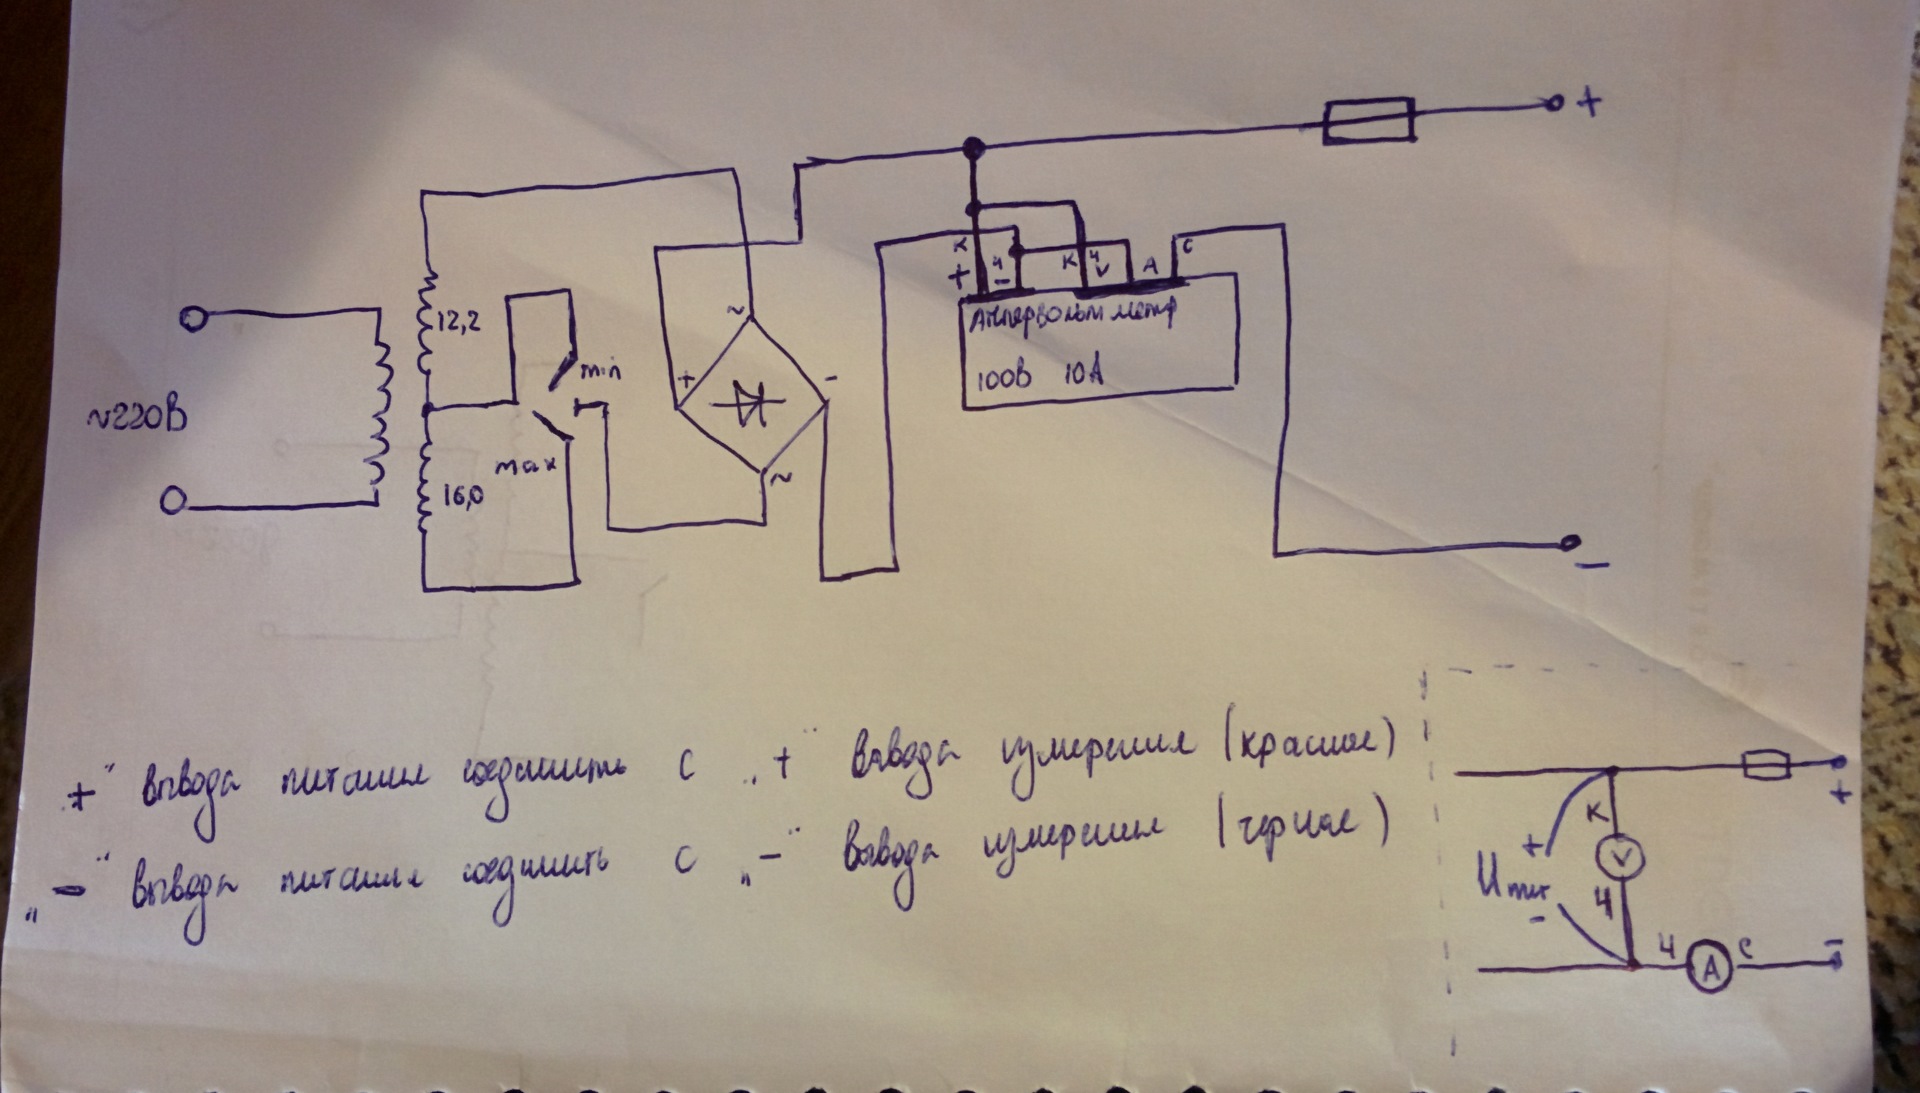 +
К Ч К Ч А С
+ - V
Ампервольтметр
100В 10А
12,2
min
~
+ -
~220В
max
16,0
~
-
„+" вывода питания соединить с „+" вывода измерения (красное)
„-" вывода питания соединить с „-" вывода измерения (черное)
+
К
+
V
Uпит
Ч
-
Ч А С -